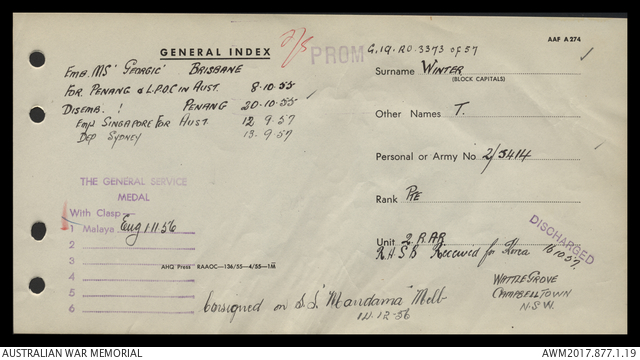 GENERAL INDEX
Emb. MS 'Georgic' Brisbane
For Penang & L.P.O.C in Aust. 8.10.55
Disemb. Penang 20.10.55
Emb Singapore For Aust. 12 9.57
Dep Sydney 13.9.57
THE GENERAL SERVICE
MEDAL
With Clasp
1 Malaya
2
3
4
5
6
AHQ Press RAAOC—136/55—4/55—1M
Consigned on S.S. "Mandama" Melb
PROM
G.19.RO.3373 of 57
AAF A274
Surname WINTER
(BLOCK CAPITALS)
Other Names T.
Personal or Army No 2/5414
Rank Pte
Unit 2 RAR
DISCHARGED
16.10.57
Wattle Grove
Campbelltown
N.S.W.
AUSTRALIAN WAR MEMORIAL
AWM2017.877.1.19